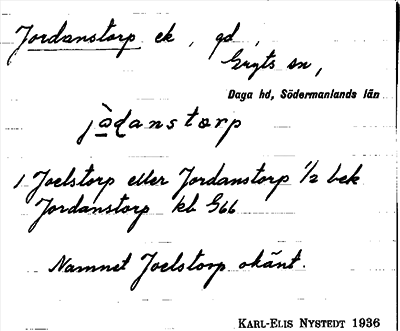 Jordanstorp ek, gd,
Gryts sn,
Daga hd, Södermanlands län
jo̱ḍanstærp
1, Joelstorp eller Jordanstorp 1/2 bek
Jordanstorp kb G66
Namnet Joelstorp okänt.
KARL-ELIS NYSTEDT 1936